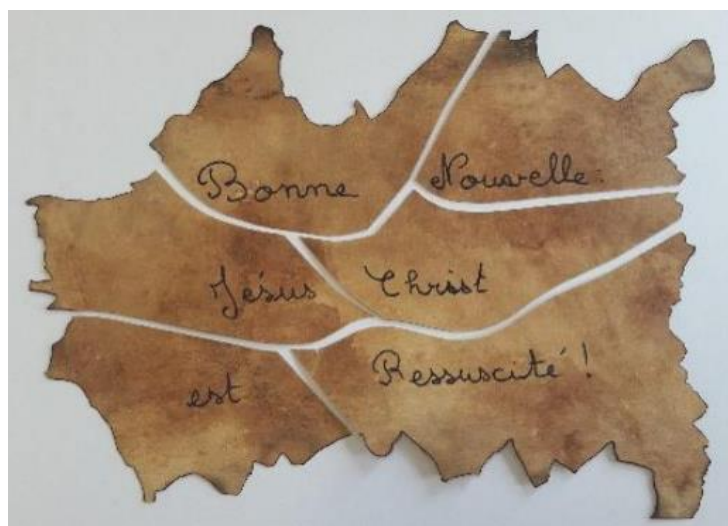 Bonne Nouvelle :
Jésus Christ
est Ressuscité !